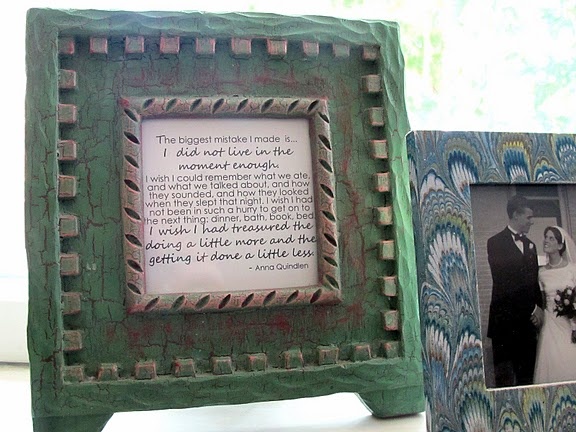 The biggest mistake I made is...
I did not live in the
moment enough.
I wish I could remember what we ate,
and what we talked about, and how
they sounded, and how they looked
when they slept that night. I wish I had
not been in such a hurry to get on to
the next thing: dinner, bath, book, bed.
I wish I had treasured the
doing a little more and the
getting it done a little less.
- Anna Quindlen